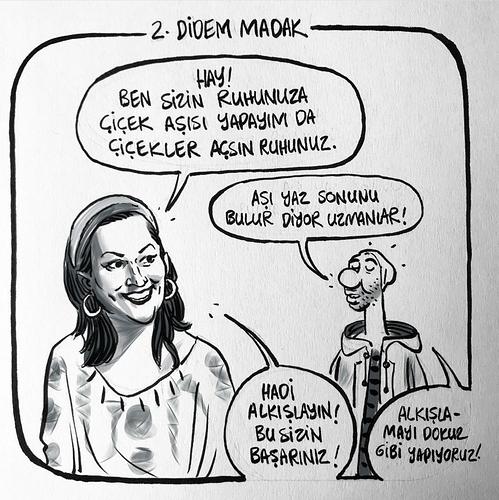 2. DİDEM MADAK
HAY!
BEN SİZİN RUHUNUZA
ÇİÇEK AŞISI YAPAYIM DA
ÇİÇEKLER AÇSIN RUHUNUZ.
AŞI YAZ SONUNU
BULUR DİYOR UZMANLAR!
HADİ
ALKIŞLAYIN!
BU SİZİN
BAŞARINIZ!
ALKIŞLA-
MAYI DOKUZ
GİBİ YAPIYORUZ!